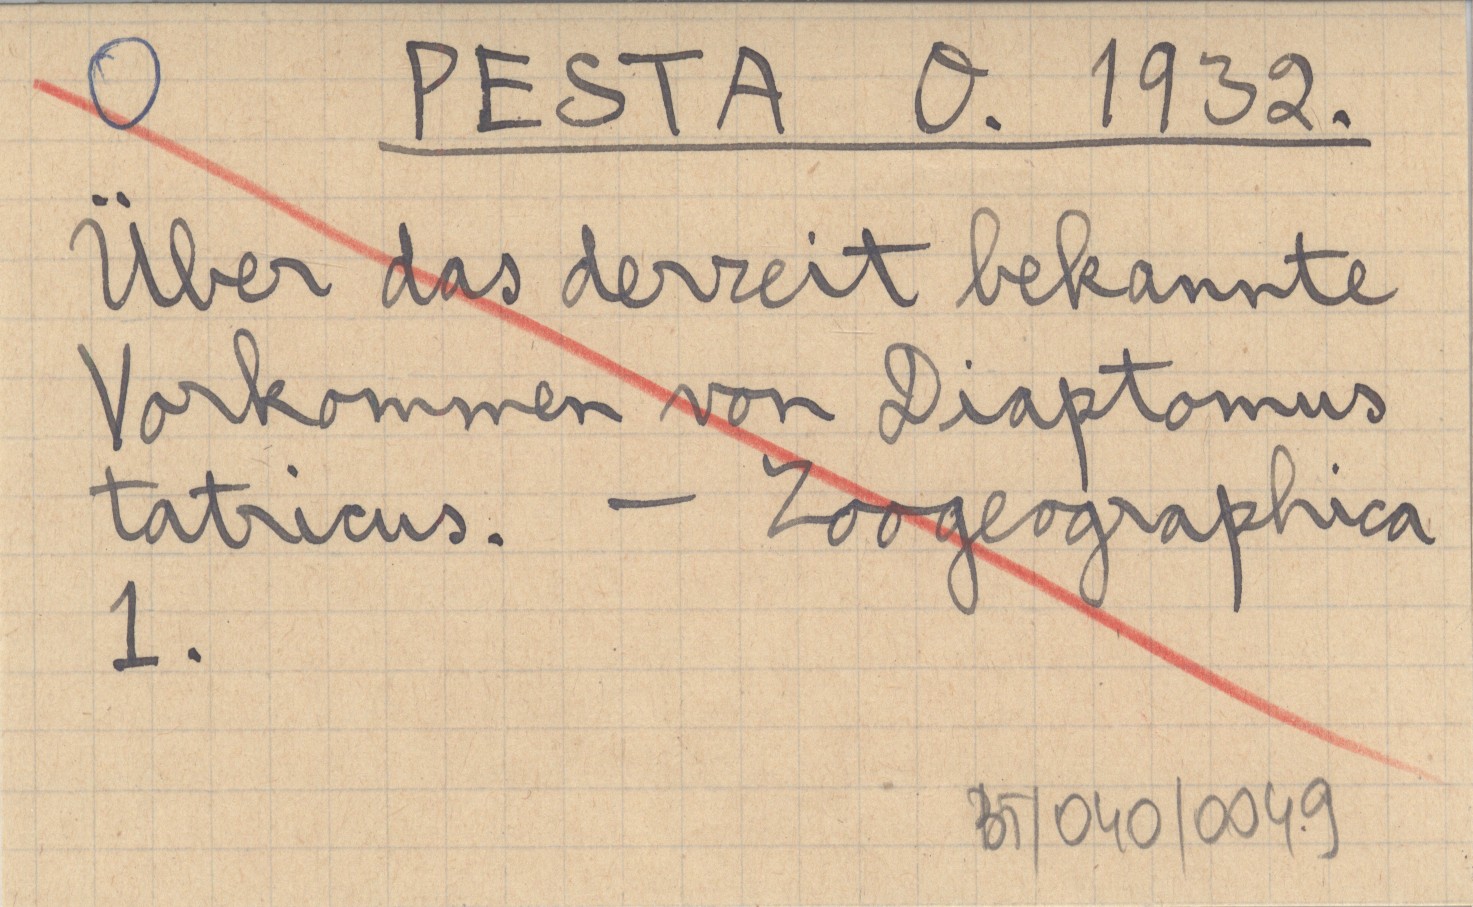 O PESTA O. 1932.
Über das derzeit bekannte
Vorkommen von Diaptomus
tatricus. — Zoogeographica
1.
BT/040/0049